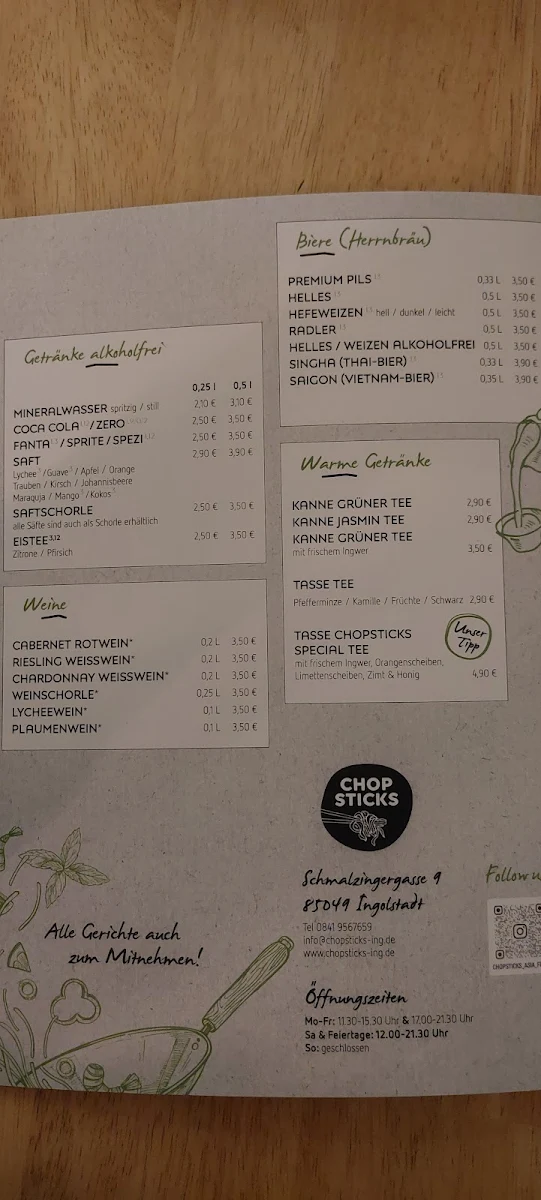 Getränke alkoholfrei
0,25 l 0,5 l
MINERALWASSER spritzig / still 2,10 € 3,10 €
COCA COLA / ZERO 2,50 € 3,50 €
FANTA / SPRITE / SPEZI 2,50 € 3,50 €
SAFT 2,90 € 3,90 €
Lychee / Guave / Apfel / Orange
Trauben / Kirsch / Johannisbeere
Maracuja / Mango / Kokos
SAFTSCHORLE 2,50 € 3,50 €
alle Säfte sind auch als Schorle erhältlich
EISTEE 3,12 2,50 € 3,50 €
Zitrone / Pfirsich
Weine
CABERNET ROTWEIN* 0,2 L 3,50 €
RIESLING WEISSWEIN* 0,2 L 3,50 €
CHARDONNAY WEISSWEIN* 0,2 L 3,50 €
WEINSCHORLE* 0,25 L 3,50 €
LYCHEEWEIN* 0,1 L 3,50 €
PLAUMENWEIN* 0,1 L 3,50 €
Alle Gerichte auch
zum Mitnehmen!
Biere (Herrnbräu)
PREMIUM PILS 0,33 L 3,50 €
HELLES 0,5 L 3,50 €
HEFEWEIZEN hell / dunkel / leicht 0,5 L 3,50 €
RADLER 0,5 L 3,50 €
HELLES / WEIZEN ALKOHOLFREI 0,5 L 3,50 €
SINGHA (THAI-BIER) 0,33 L 3,90 €
SAIGON (VIETNAM-BIER) 0,35 L 3,90 €
Warme Getränke
KANNE GRÜNER TEE 2,90 €
KANNE JASMIN TEE 2,90 €
KANNE GRÜNER TEE
mit frischem Ingwer 3,50 €
TASSE TEE
Pfefferminze / Kamille / Früchte / Schwarz 2,90 €
TASSE CHOPSTICKS
SPECIAL TEE
mit frischem Ingwer, Orangenscheiben,
Limettenscheiben, Zimt & Honig 4,90 €
Unser
Tipp
CHOP
STICKS
Schmalzingergasse 9
85049 Ingolstadt
Tel 0841 9567659
info@chopsticks-ing.de
www.chopsticks-ing.de
Follow u
Öffnungszeiten
Mo-Fr: 11.30-15.30 Uhr & 17.00-21.30 Uhr
Sa & Feiertage: 12.00-21.30 Uhr
So: geschlossen